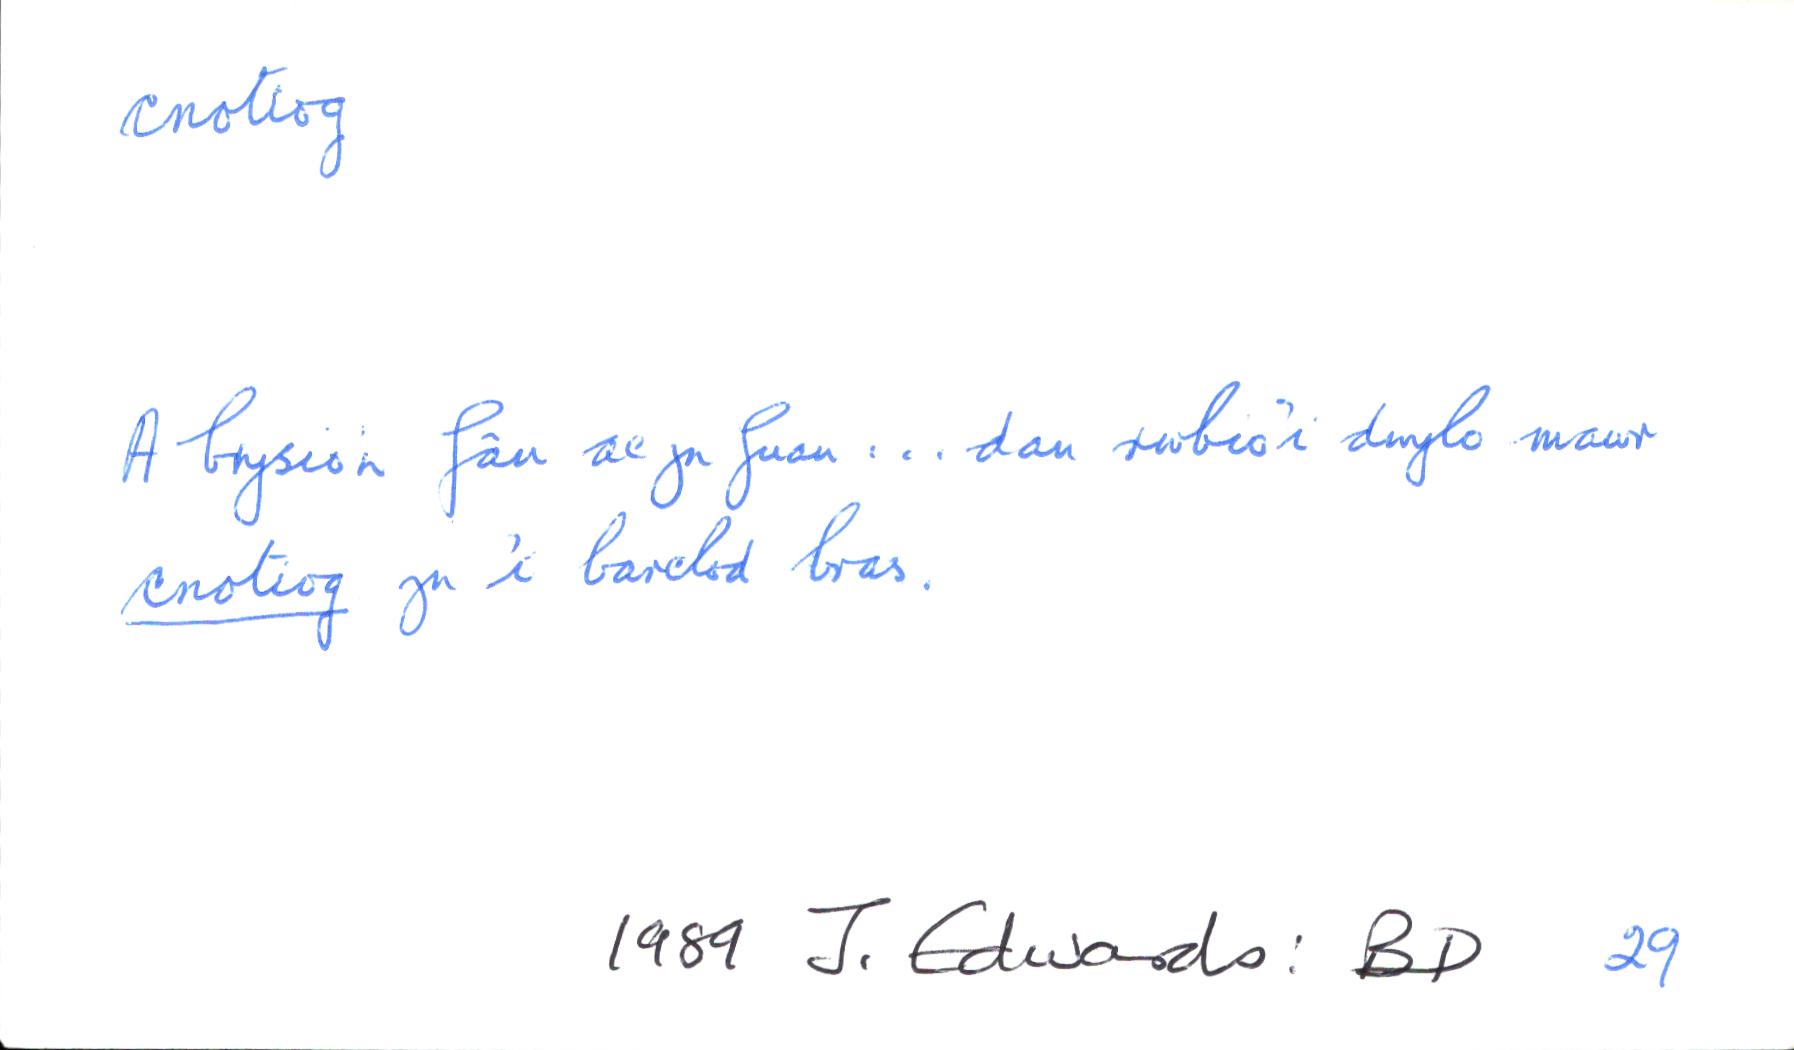 cnotiog
A brysio'n fân ac yn fuan ... dan rwbio'i dwylo mawr
cnotiog yn 'i barclod bras.
1989 J. Edwards: BD 29